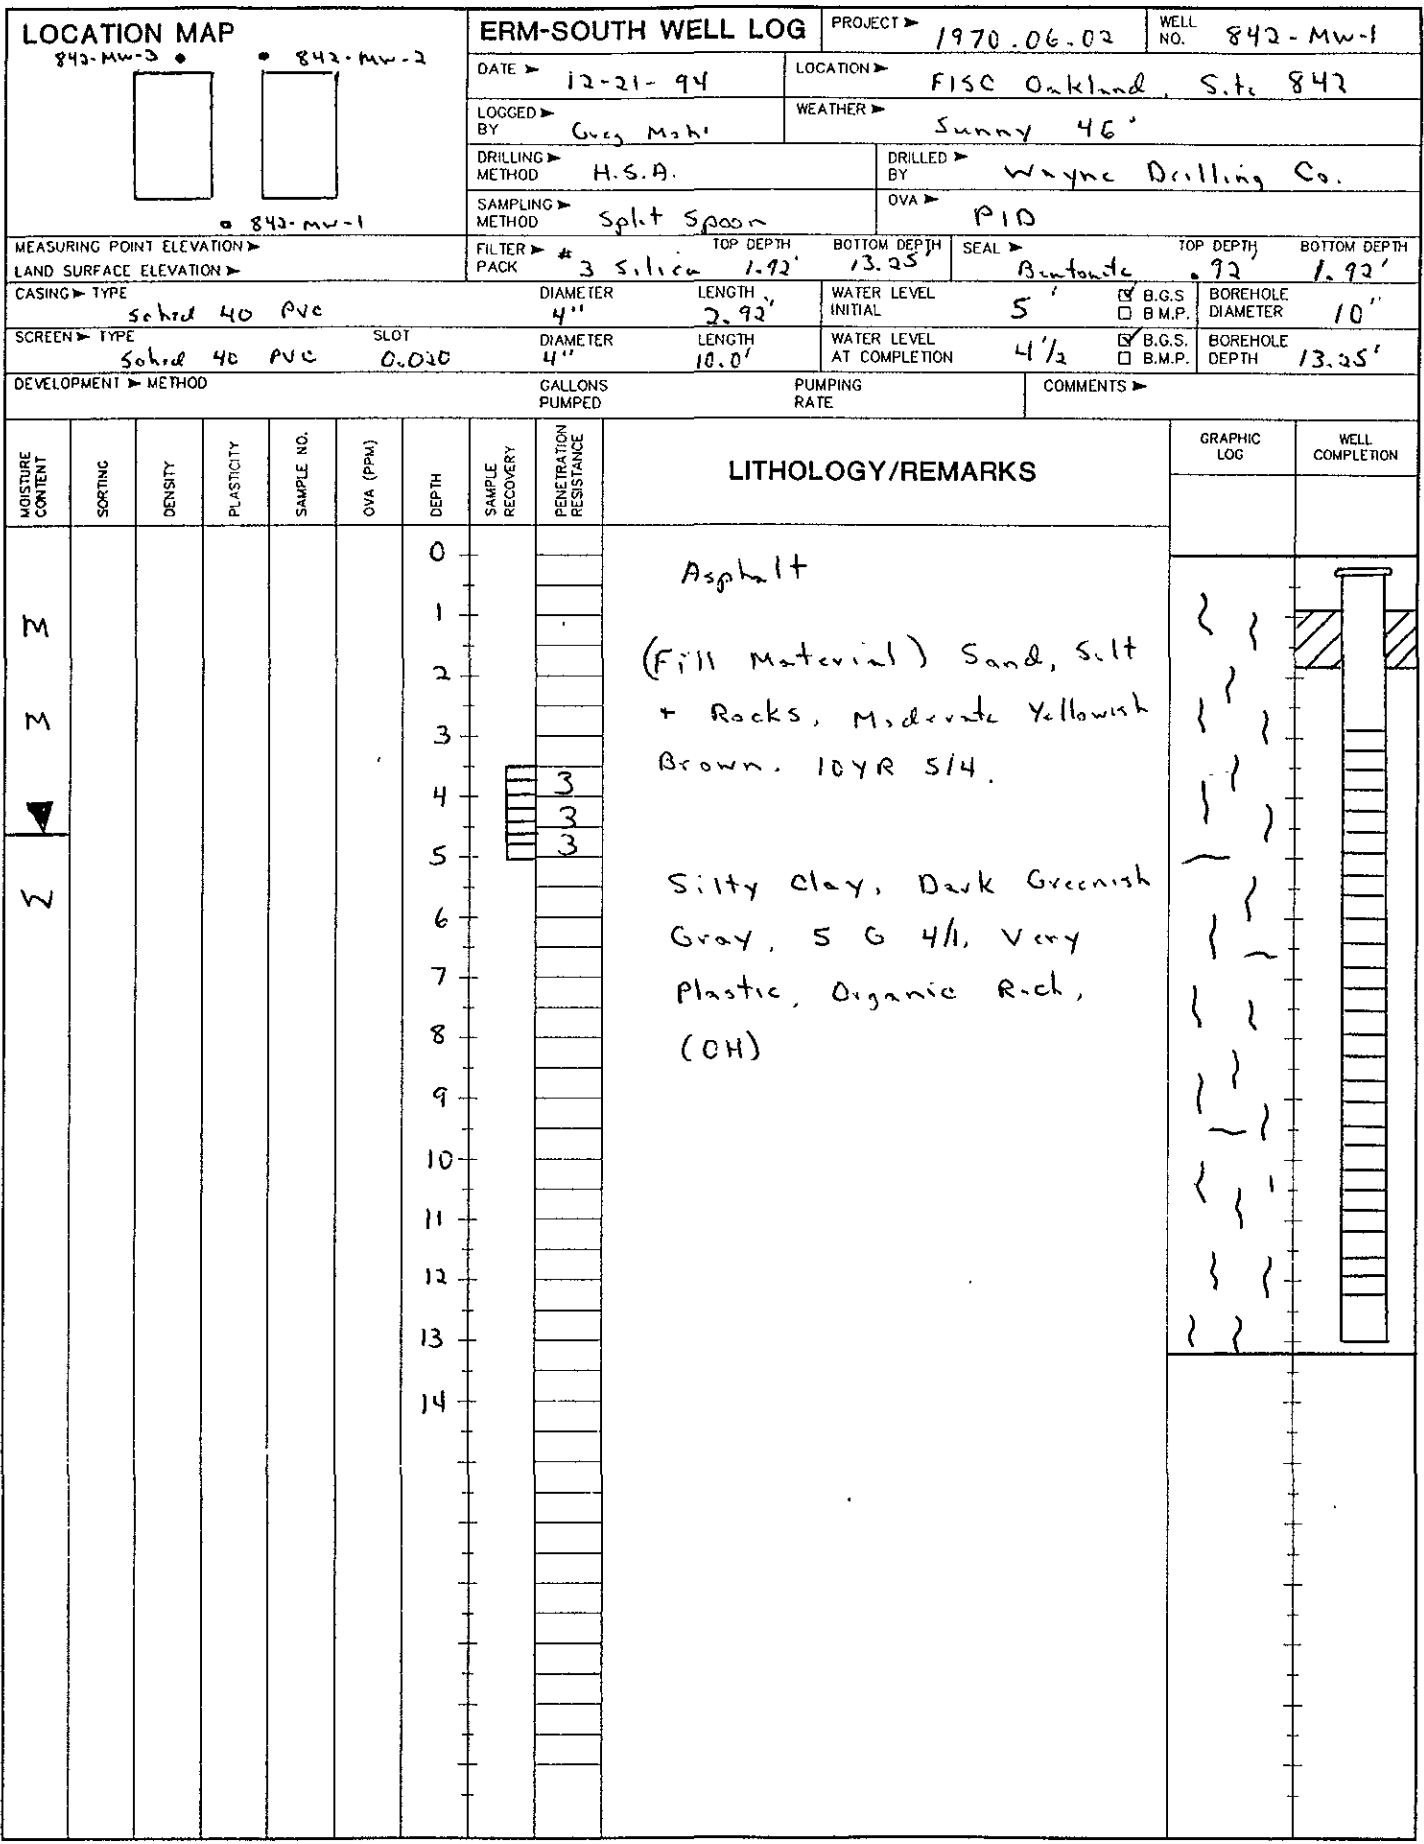 LOCATION MAP
842-MW-3
842-MW-2
842-MW-1
ERM-SOUTH WELL LOG
PROJECT 1970.06.02
WELL NO. 842-MW-1
DATE 12-21-94
LOCATION FISC Oakland, Site 842
LOGGED BY Greg
WEATHER Sunny 46°
DRILLING METHOD H.S.A.
DRILLED BY Wayne Drilling Co.
SAMPLING METHOD Split Spoon
OVA PID
MEASURING POINT ELEVATION
LAND SURFACE ELEVATION
FILTER PACK #3 Silica TOP DEPTH 1.92' BOTTOM DEPTH 13.25'
SEAL Bentonite TOP DEPTH .92' BOTTOM DEPTH 1.92'
CASING TYPE Sched 40 PVC DIAMETER 4" LENGTH 2.92'
WATER LEVEL INITIAL 5' B.G.S B.M.P.
BOREHOLE DIAMETER 10"
SCREEN TYPE Sched 40 PVC SLOT 0.020 DIAMETER 4" LENGTH 10.0'
WATER LEVEL AT COMPLETION 4 1/2 B.G.S. B.M.P.
BOREHOLE DEPTH 13.25'
DEVELOPMENT METHOD GALLONS PUMPED PUMPING RATE COMMENTS
MOISTURE CONTENT
SORTING
DENSITY
PLASTICITY
SAMPLE NO.
OVA (PPM)
DEPTH
SAMPLE RECOVERY
PENETRATION RESISTANCE
LITHOLOGY/REMARKS
GRAPHIC LOG
WELL COMPLETION
M
M
W
0
1
2
3
4
5
6
7
8
9
10
11
12
13
14
3
3
3
Asphalt
(Fill Material) Sand, Silt
+ Rocks, Moderate Yellowish
Brown. 10YR 5/4.
Silty Clay, Dark Greenish
Gray, 5 G 4/1, Very
Plastic, Organic Rich,
(OH)